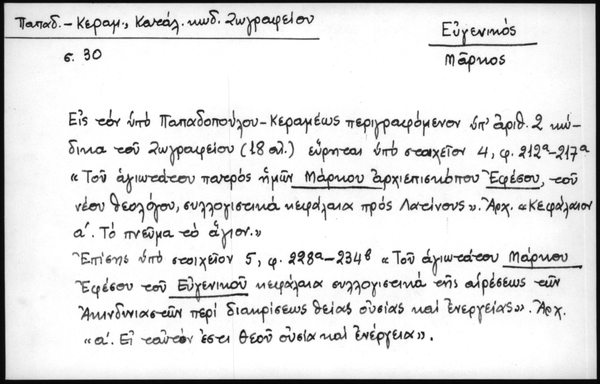 Παπαδ.-Κεραμ., Κατάλ. κωδ. Ζωγραφείου
Εὐγενικός
Μᾶρκος
σ. 30
Εἰς τόν ὑπό Παπαδοπούλου-Κεραμέως περιγραφόμενον ὑπ' ἀριθ. 2 κώ-
δικα τοῦ Ζωγραφείου (18 αἰ.) εὕρηται ὑπό στοιχεῖον 4, φ. 212α-217α
« Τοῦ ἁγιωτάτου πατρός ἡμῶν Μάρκου ἀρχιεπισκόπου Ἐφέσου, τοῦ
νέου θεολόγου, συλλογιστικά κεφάλαια πρός Λατίνους». Ἀρχ. «Κεφάλαιον
α΄. Τό πνεῦμα τό ἅγιον.»
Ἐπίσης ὑπό στοιχεῖον 5, φ. 228α-234β « Τοῦ ἁγιωτάτου Μάρκου
Ἐφέσου τοῦ Εὐγενικοῦ κεφάλαια συλλογιστικά τῆς αἱρέσεως τῶν
Ἀκινδυνιαστῶν περί διακρίσεως θείας οὐσίας καί ἐνεργείας». Ἀρχ.
«α΄. Εἰ ταὐτόν ἐστι θεοῦ οὐσία καί ἐνέργεια».